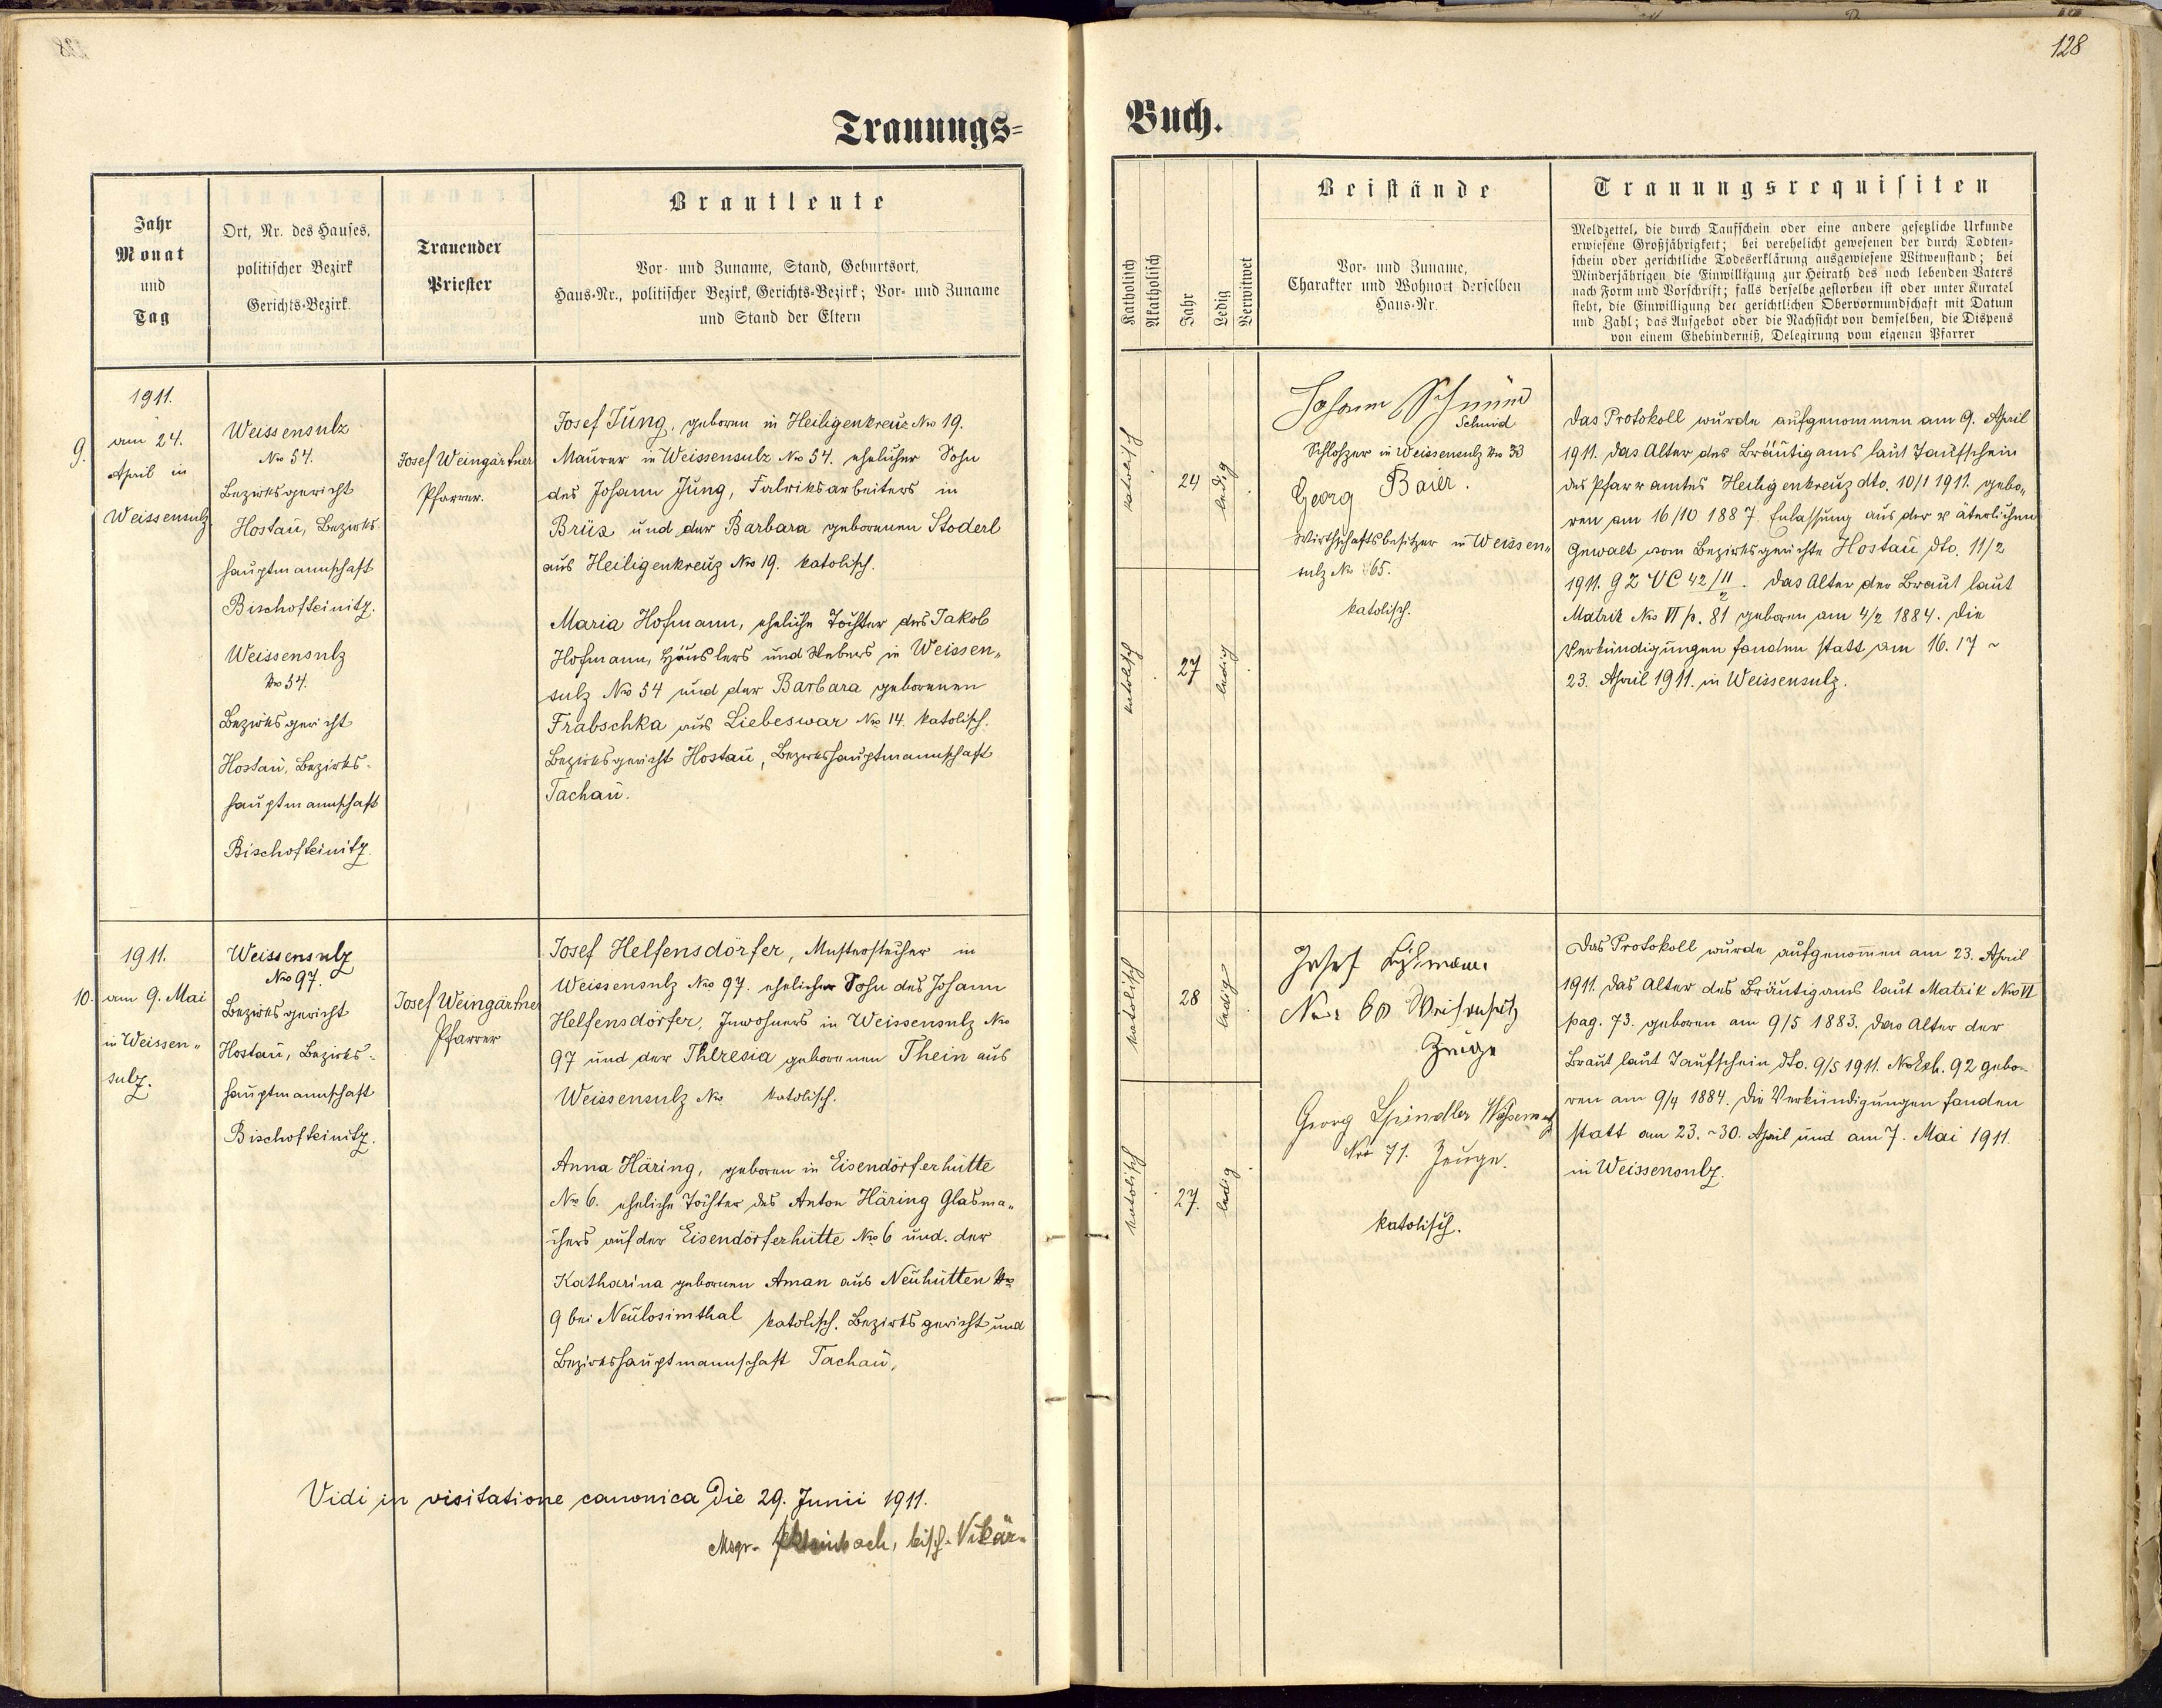 128
Trauungs-
Buch.
Jahr
Monat
und
Tag
Ort, Nr. des Hauses,
politischer Bezirk
Gerichts-Bezirk.
Trauender
Priester
Brautleute
Vor- und Zuname, Stand, Geburtsort,
Haus-Nr., politischer Bezirk, Gerichts-Bezirk; Vor- und Zuname
und Stand der Eltern
Katholisch
Akatholisch
Jahr
Ledig
Verwitwet
Beistände
Vor- und Zuname,
Charakter und Wohnort derselben
Haus-Nr.
Trauungsrequisiten
Meldzettel, die durch Taufschein oder eine andere gesetzliche Urkunde
erwiesene Großjährigkeit; bei verehelicht gewesenen der durch Todten-
schein oder gerichtliche Todeserklärung ausgewiesene Witwenstand; bei
Minderjährigen die Einwilligung zur Heirath des noch lebenden Vaters
nach Form und Vorschrift; falls derselbe gestorben ist oder unter Kuratel
steht, die Einwilligung der gerichtlichen Obervormundschaft mit Datum
und Zahl; das Aufgebot oder die Nachsicht von demselben, die Dispens
von einem Ehehinderniß, Delegirung vom eigenen Pfarrer
9.
1911.
am 24.
April in
Weissensulz
Weissensulz
No 54.
Bezirksgericht
Hostau, Bezirks-
hauptmannschaft
Bischofteinitz.
Weissensulz
No 54.
Bezirksgericht
Hostau, Bezirks-
hauptmannschaft
Bischofteinitz.
Josef Weingärtner
Pfarrer.
Josef Jung, geboren in Heiligenkreuz No 19.
Maurer in Weissensulz No 54. ehelicher Sohn
des Johann Jung, Fabriksarbeiters in
Brüx und der Barbara geborenen Stoderl
aus Heiligenkreuz No 19. katolisch.
Maria Hofmann, eheliche Tochter des Jakob
Hofmann, Häuslers und Webers in Weissen„
sulz No 54 und der Barbara geborenen
Frabschka aus Liebeswar No 14. katolisch.
Bezirksgericht Hostau, Bezirkshauptmannschaft
Tachau.
katolisch
24
ledig
katolisch
27
ledig
Johann Schmid
Schmid
Schlosser in Weissensulz No 33
Georg Baier.
Wirthschaftsbesitzer in Weissen„
sulz No 65.
katolisch.
Das Protokoll wurde aufgenommen am 9. April
1911. Das Alter des Bräutigams laut Taufschein
des Pfarramtes Heiligenkreuz dto. 10/1 1911. gebo„
ren am 16/10 1887. Entlassung aus der väterlichen
Gewalt vom Bezirksgerichte Hostau dto. 11/2
1911. G Z VC 42/11/2. Das Alter der Braut laut
Matrik No VI p. 81 geboren am 4/2 1884. Die
Verkündigungen fanden statt am 16. 17 ~
23. April 1911. in Weissensulz.
10.
1911.
am 9. Mai
in Weissen„
sulz.
Weissensulz
No 97.
Bezirksgericht
Hostau, Bezirks-
hauptmannschaft
Bischofteinitz.
Josef Weingärtner
Pfarrer
Josef Helfensdörfer, Musterstecher in
Weissensulz No 97. ehelicher Sohn des Johann
Helfensdörfer, Inwohners in Weissensulz No
97 und der Theresia geborenen Thein aus
Weissensulz No katolisch.
Anna Häring, geboren in Eisendörferhütte
No 6. eheliche Tochter des Anton Häring Glasma„
chers auf der Eisendörferhütte No 6 und der
Katharina gebornen Aman aus Neuhütten No
9 bei Neulosimthal katolisch. Bezirksgericht und
Bezirkshauptmannschaft Tachau,
katolisch
28
ledig
katolisch
27.
ledig
Josef
Nr. 60
Zeuge
Georg Spindler
No 71. Zeuge.
katolisch.
Das Protokoll wurde aufgenommen am 23. April
1911. Das Alter des Bräutigams laut Matrik No VI
pag. 73. geboren am 9/5 1883. Das Alter der
Braut laut Taufschein dto. 9/5 1911. No Exh. 92 gebo-
ren am 9/4 1884. Die Verkündigungen fanden
statt am 23. ~ 30. April und am 7. Mai 1911.
in Weissensulz.
Vidi in visitatione canonica die 29. Junii 1911.
Msgr. bisch. Vikär.